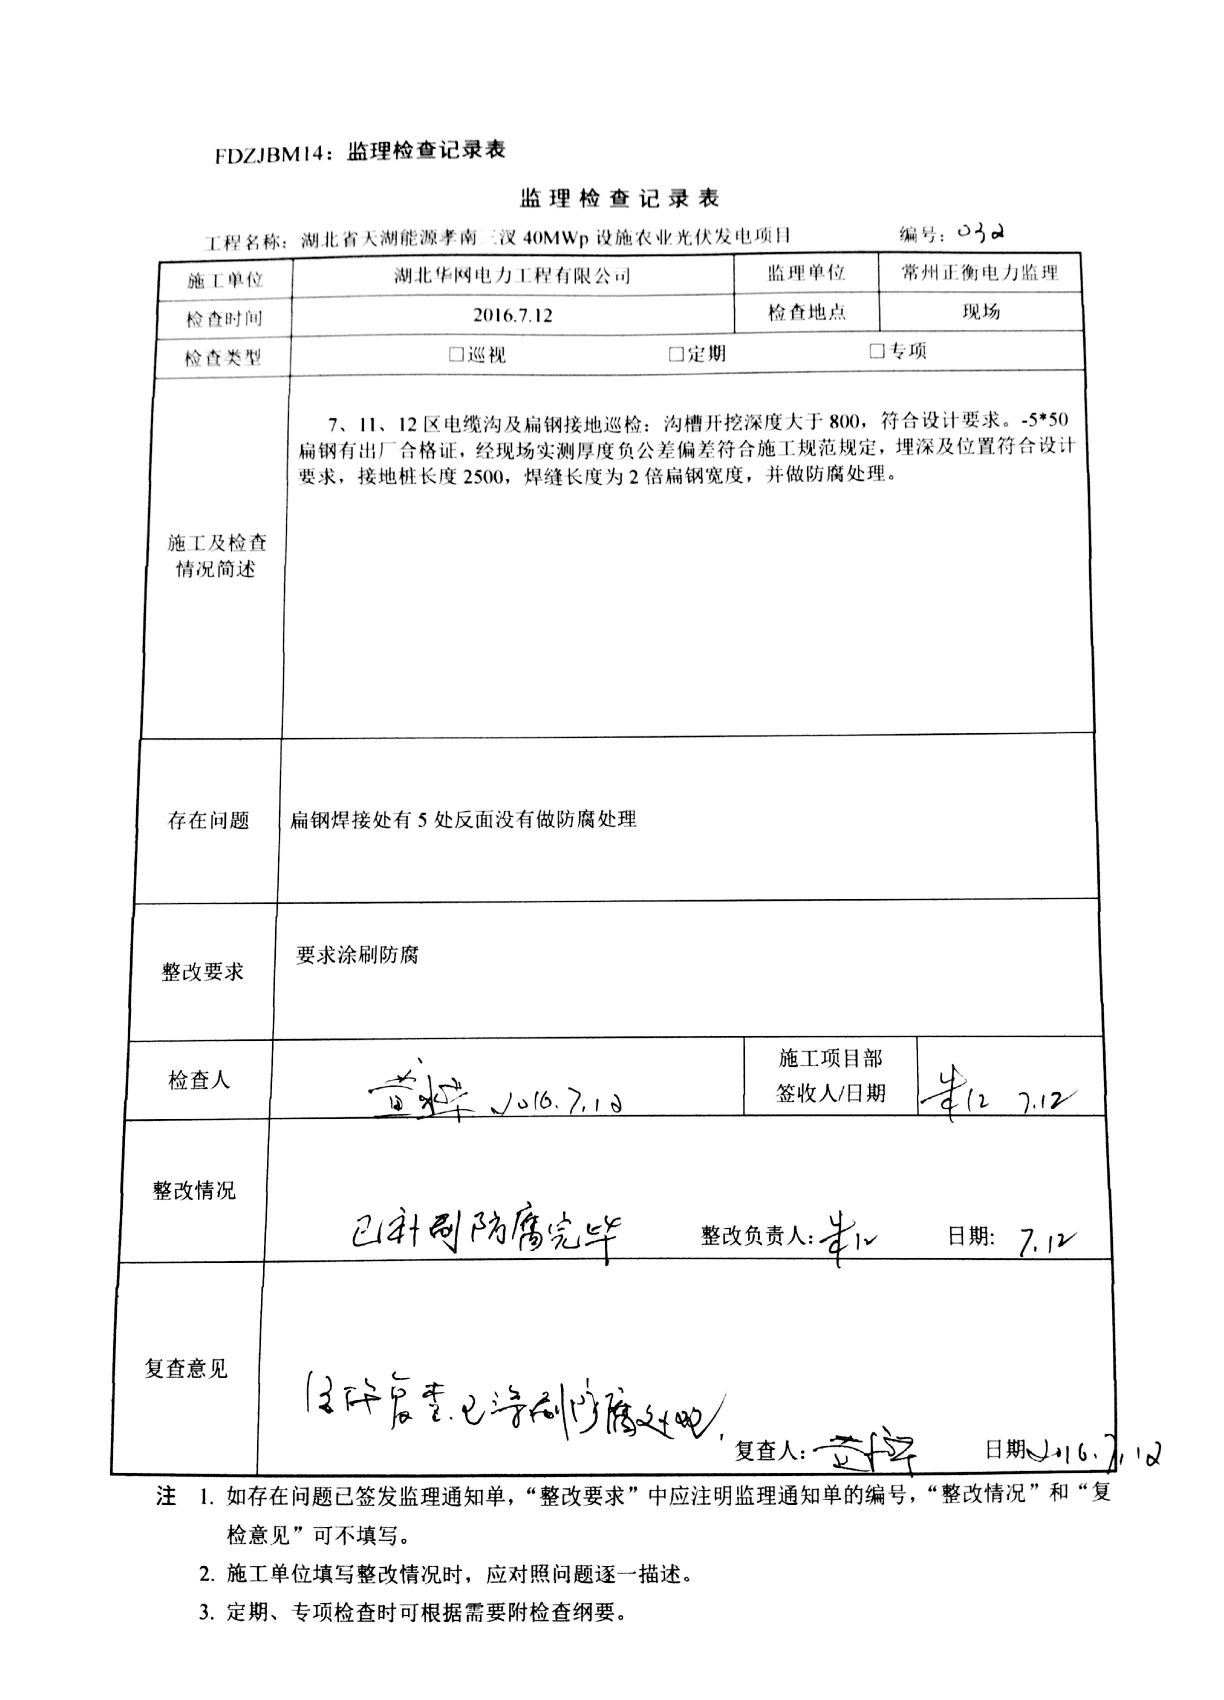 FDZJBM14：监理检查记录表
监理检查记录表
工程名称：湖北省天湖能源孝南三汊 40MWp 设施农业光伏发电项目 编号：032
施工单位 湖北华网电力工程有限公司 监理单位 常州正衡电力监理
检查时间 2016.7.12 检查地点 现场
检查类型 □巡视 □定期 □专项
7、11、12 区电缆沟及扁钢接地巡检：沟槽开挖深度大于 800，符合设计要求。-5*50
扁钢有出厂合格证，经现场实测厚度负公差偏差符合施工规范规定，埋深及位置符合设计
要求，接地桩长度 2500，焊缝长度为 2 倍扁钢宽度，并做防腐处理。
施工及检查
情况简述
存在问题 扁钢焊接处有 5 处反面没有做防腐处理
整改要求 要求涂刷防腐
检查人 2016.7.12 施工项目部
签收人/日期 7.12
整改情况 已补刷防腐完毕 整改负责人： 日期: 7.12
复查意见 复查.已涂刷防腐处理,
复查人: 日期 2016.7.12
注 1. 如存在问题已签发监理通知单，“整改要求”中应注明监理通知单的编号，“整改情况”和“复
检意见”可不填写。
2. 施工单位填写整改情况时，应对照问题逐一描述。
3. 定期、专项检查时可根据需要附检查纲要。